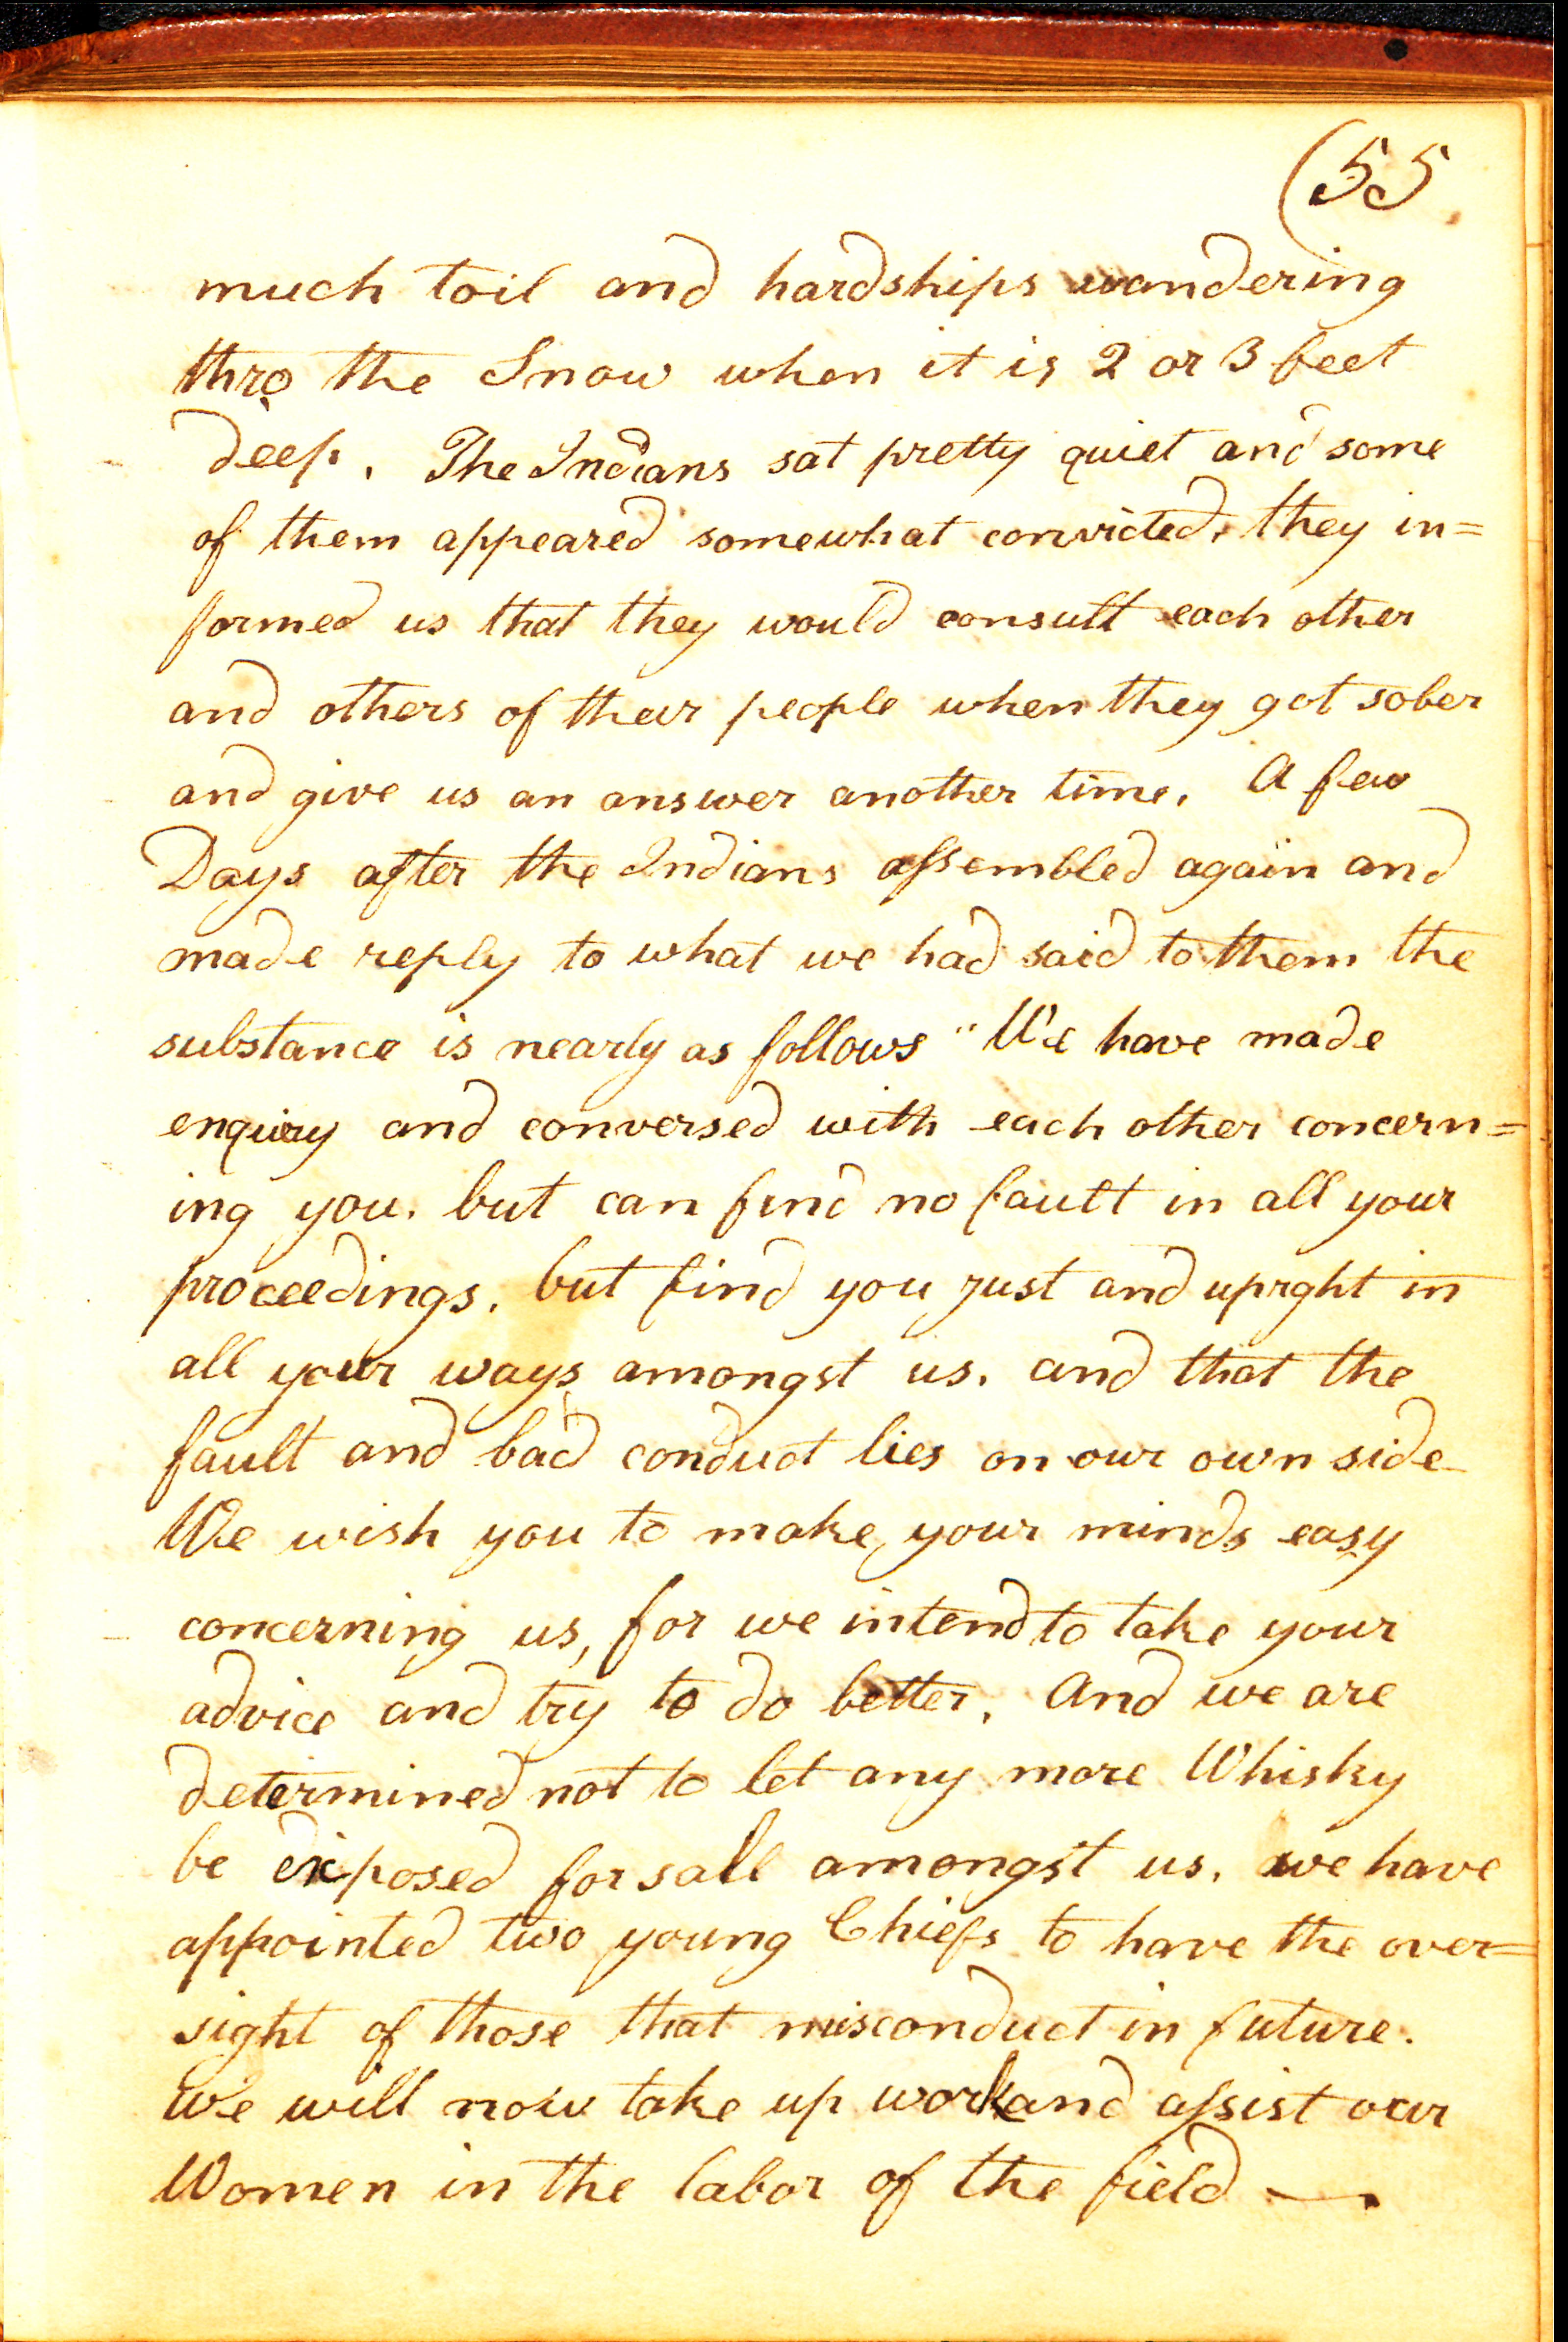 (55
much toil and hardships wandering
thro the Snow when it is 2 or 3 feet
deep. The Indians sat pretty quiet and some
of them appeared somewhat convicted, they in=
formed us that they would consult each other
and others of their people when they got sober
and give us an answer another time. A few
Days after the Indians assembled again and
made reply to what we had said to them the
substance is nearly as follows "We have made
enquiry and conversed with each other concern=
ing you. but can find no fault in all your
proceedings. but find you just and upright in
all your ways amongst us. and that the
fault and bad conduct lies on our own side
We wish you to make your minds easy
concerning us, for we intend to take your
advice and try to do better. And we are
determined not to let any more Whisky
be exposed for sall amongst us. we have
appointed two young Chiefs to have the over=
sight of those that misconduct in future.
We will now take up work and assist our
Women in the labor of the field —